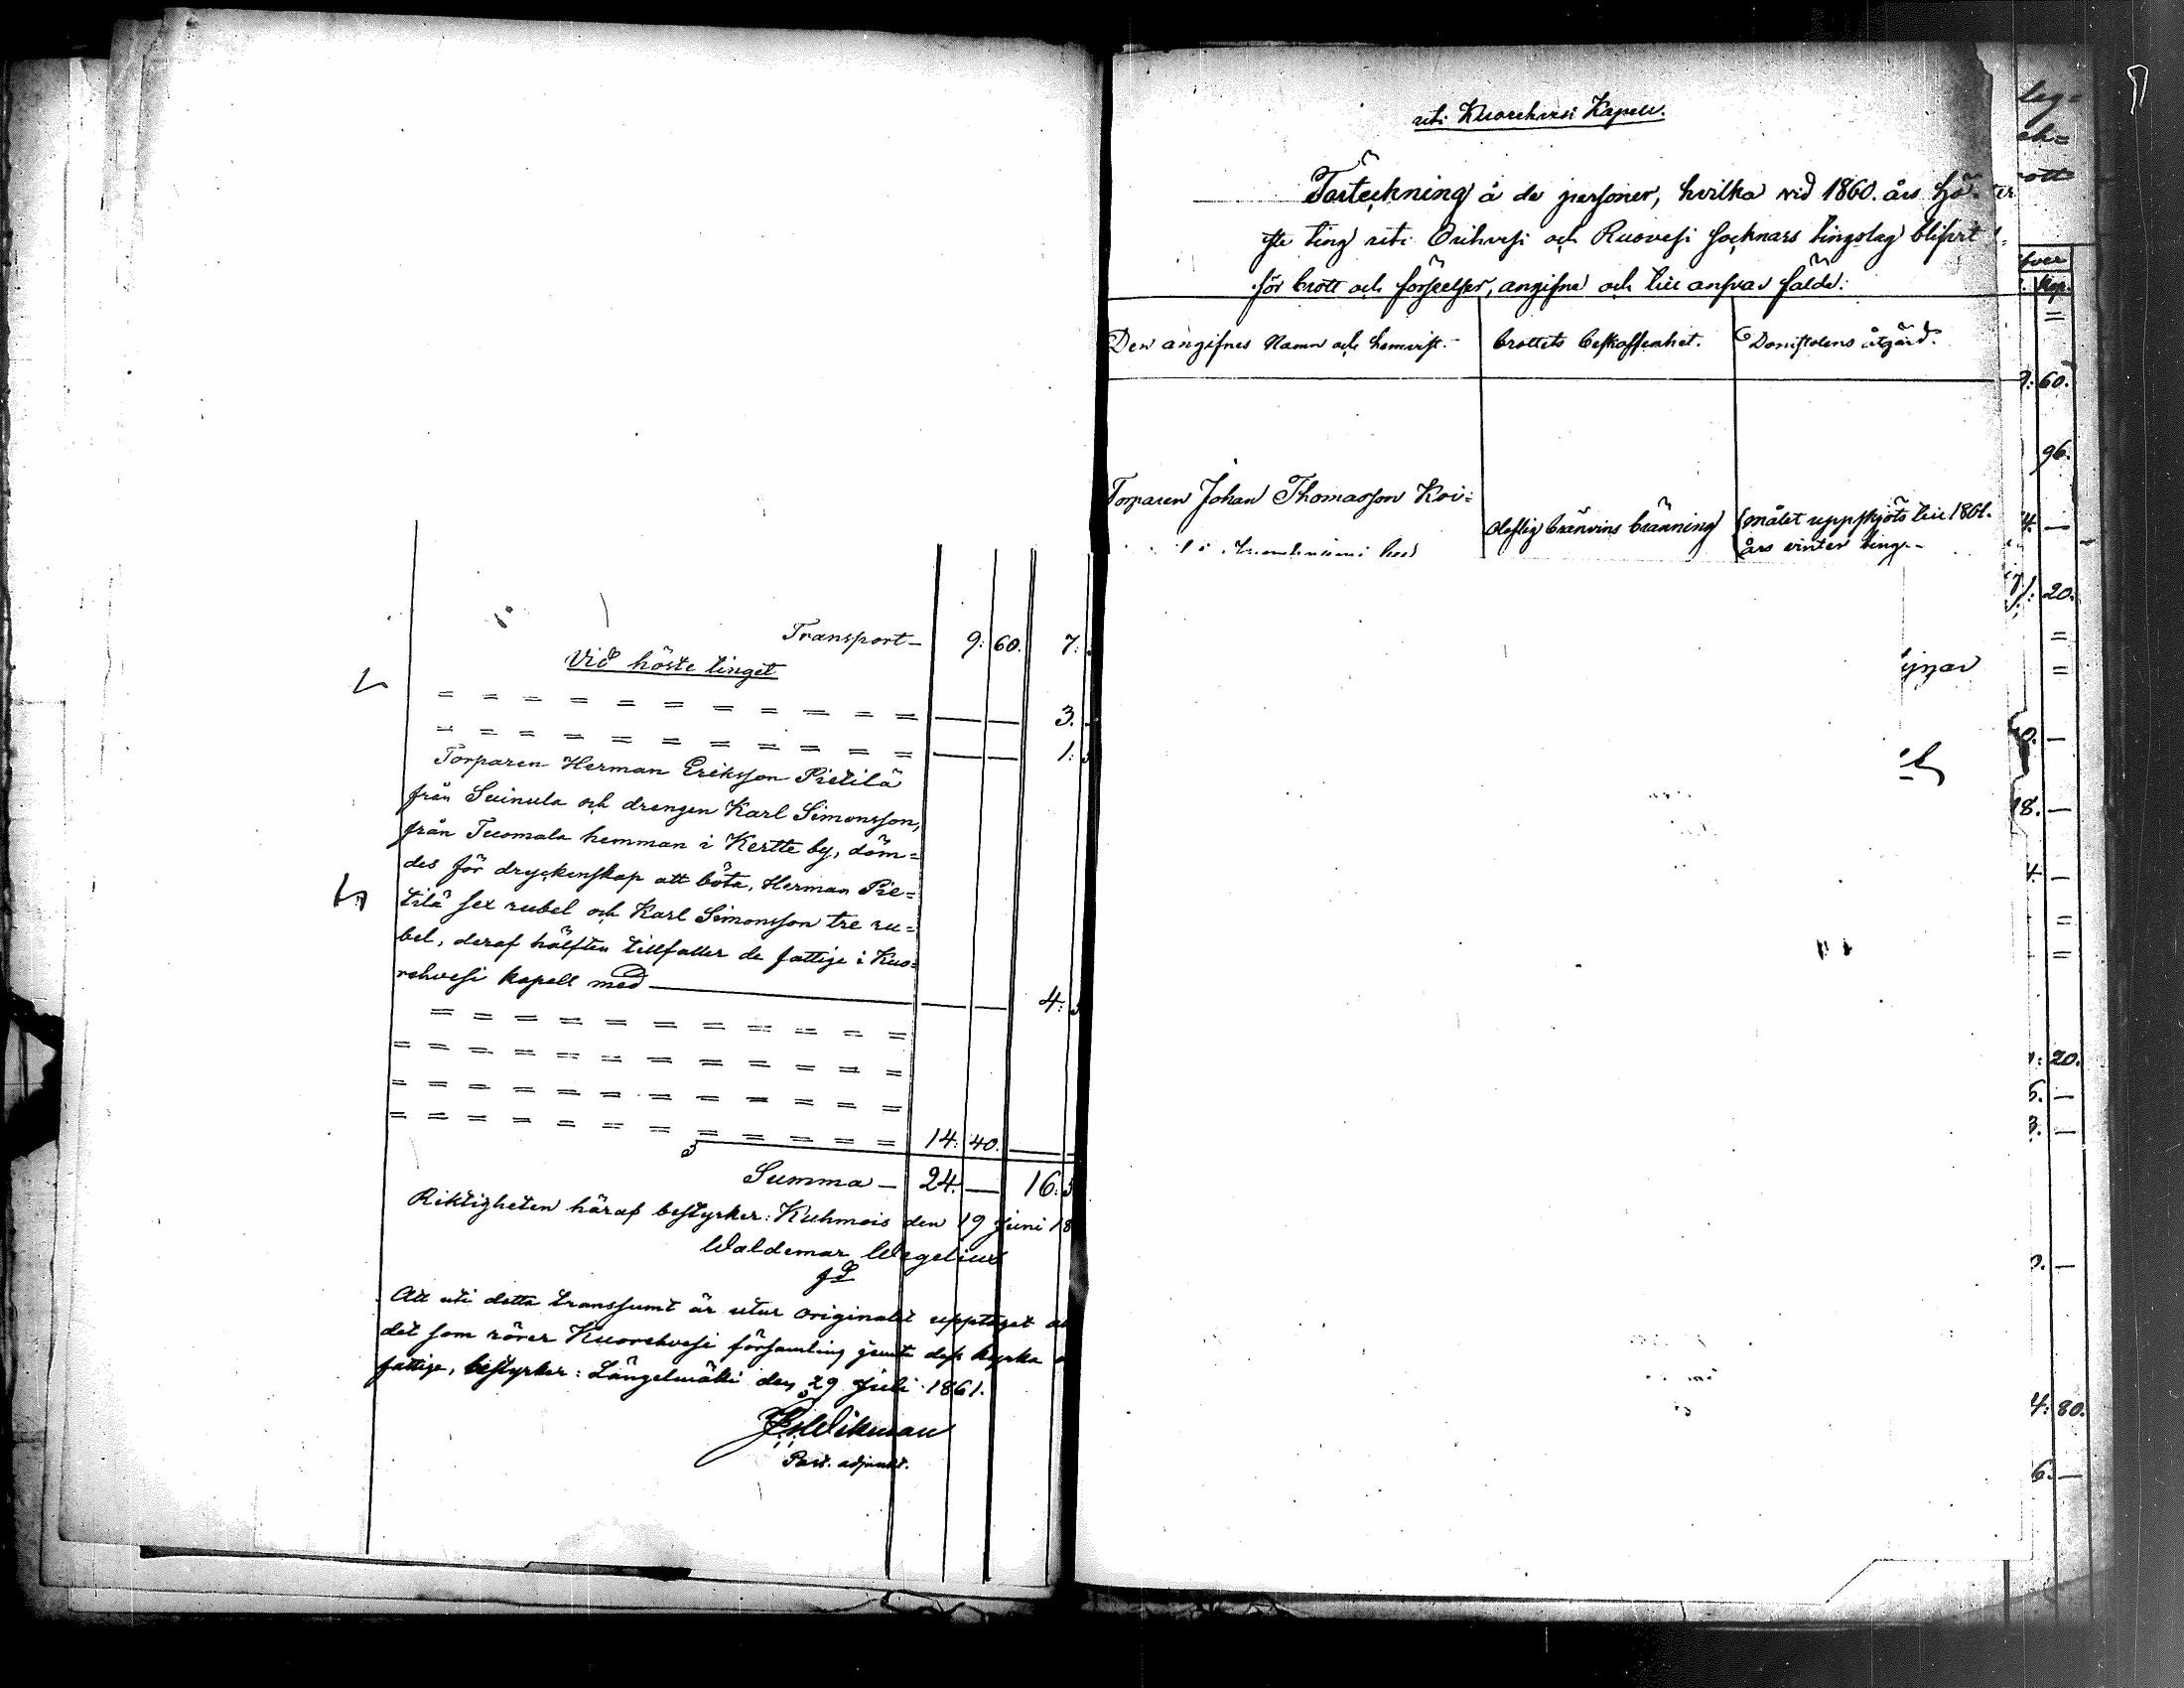 Transport — 9: 60. 7:
Vid höste tinget
= = = = = = = = = = = — — 3.
= = = = = = = = = = = — — 1:
Torparen Herman Eriksson Pietilä
från Suinula och drengen Karl Simonsson,
från Tuomala hemman i Kertte by, döm=
des för dryckenskap att böta, Herman Pie=
tilä sex rubel och Karl Simonsson tre ru=
bel, deraf hälften tillfaller de fattige i Kuo=
rehvesi kapell med — — — 4:
= = = = = = = = = = =
= = = = = = = = = = = =
= = = = = = = = = = = =
= = = = = = = = = = = = 14: 40. —
Summa — 24. — 16:
Riktigheten häraf bestyrker: Kuhmois den 19 Juni 18
Waldemar Wegelius
Att uti detta transsumt är utur originalet upptaget
det som rörer Kuorehvesi församling jemte dess kyrka
fattige, bestyrker: Längelmäki den 29 Juli 1861.
Wikman
Past. adjunkt.
uti Kuorehvesi Kapell.
Förteckning å de personer, hvilka vid 1860. års Hö
ste ting uti Orihvesi och Ruovesi Socknars tingslag blifvit
för brott och förseelser, angifne och till ansvar fälde:
Den angifnes Namn och hemvist. brottets beskaffenhet. Domstolens åtgärd.
Torparen Johan Thomasson Koi=
olaflig bränvins bränning målet uppskjöts till 1861.
års vinter ting.
ter
Kop.
=
60.
96.
4. —
20.
=
=
—
18. —
4. —
=
=
20.
5. —
3. —
—
4: 80.
6. —